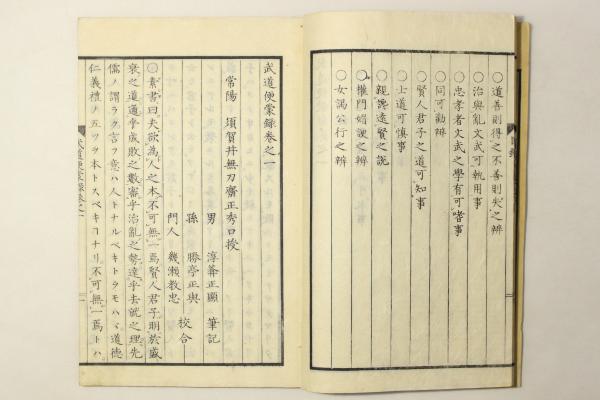 ○道善則得之不善則失之辨
○治與亂文武可執用事
○忠孝者文武之學有可嗜事
○同可勸辨
○賢人君子之道可知事
○士道可慎事
○親讒遠賢之說
○權門媚諛之辨
○女謁公行之辨
武道便蒙錄卷之一
常陽 須賀井無刀齋正秀口授
男 淳菴正顯 筆記
孫 勝亭正與
門人 幾瀨教忠 校合
○素書曰夫欲為人之本不可無一焉賢人君子明於盛
衰之道通乎成敗之數審乎治亂之勢達乎去就之理先
儒ノ謂ラク言フ意ハ人トナルベキトヲモハヾ道德
仁義禮ノ五ツヲ本トスベキコナリ不可無一焉トハ